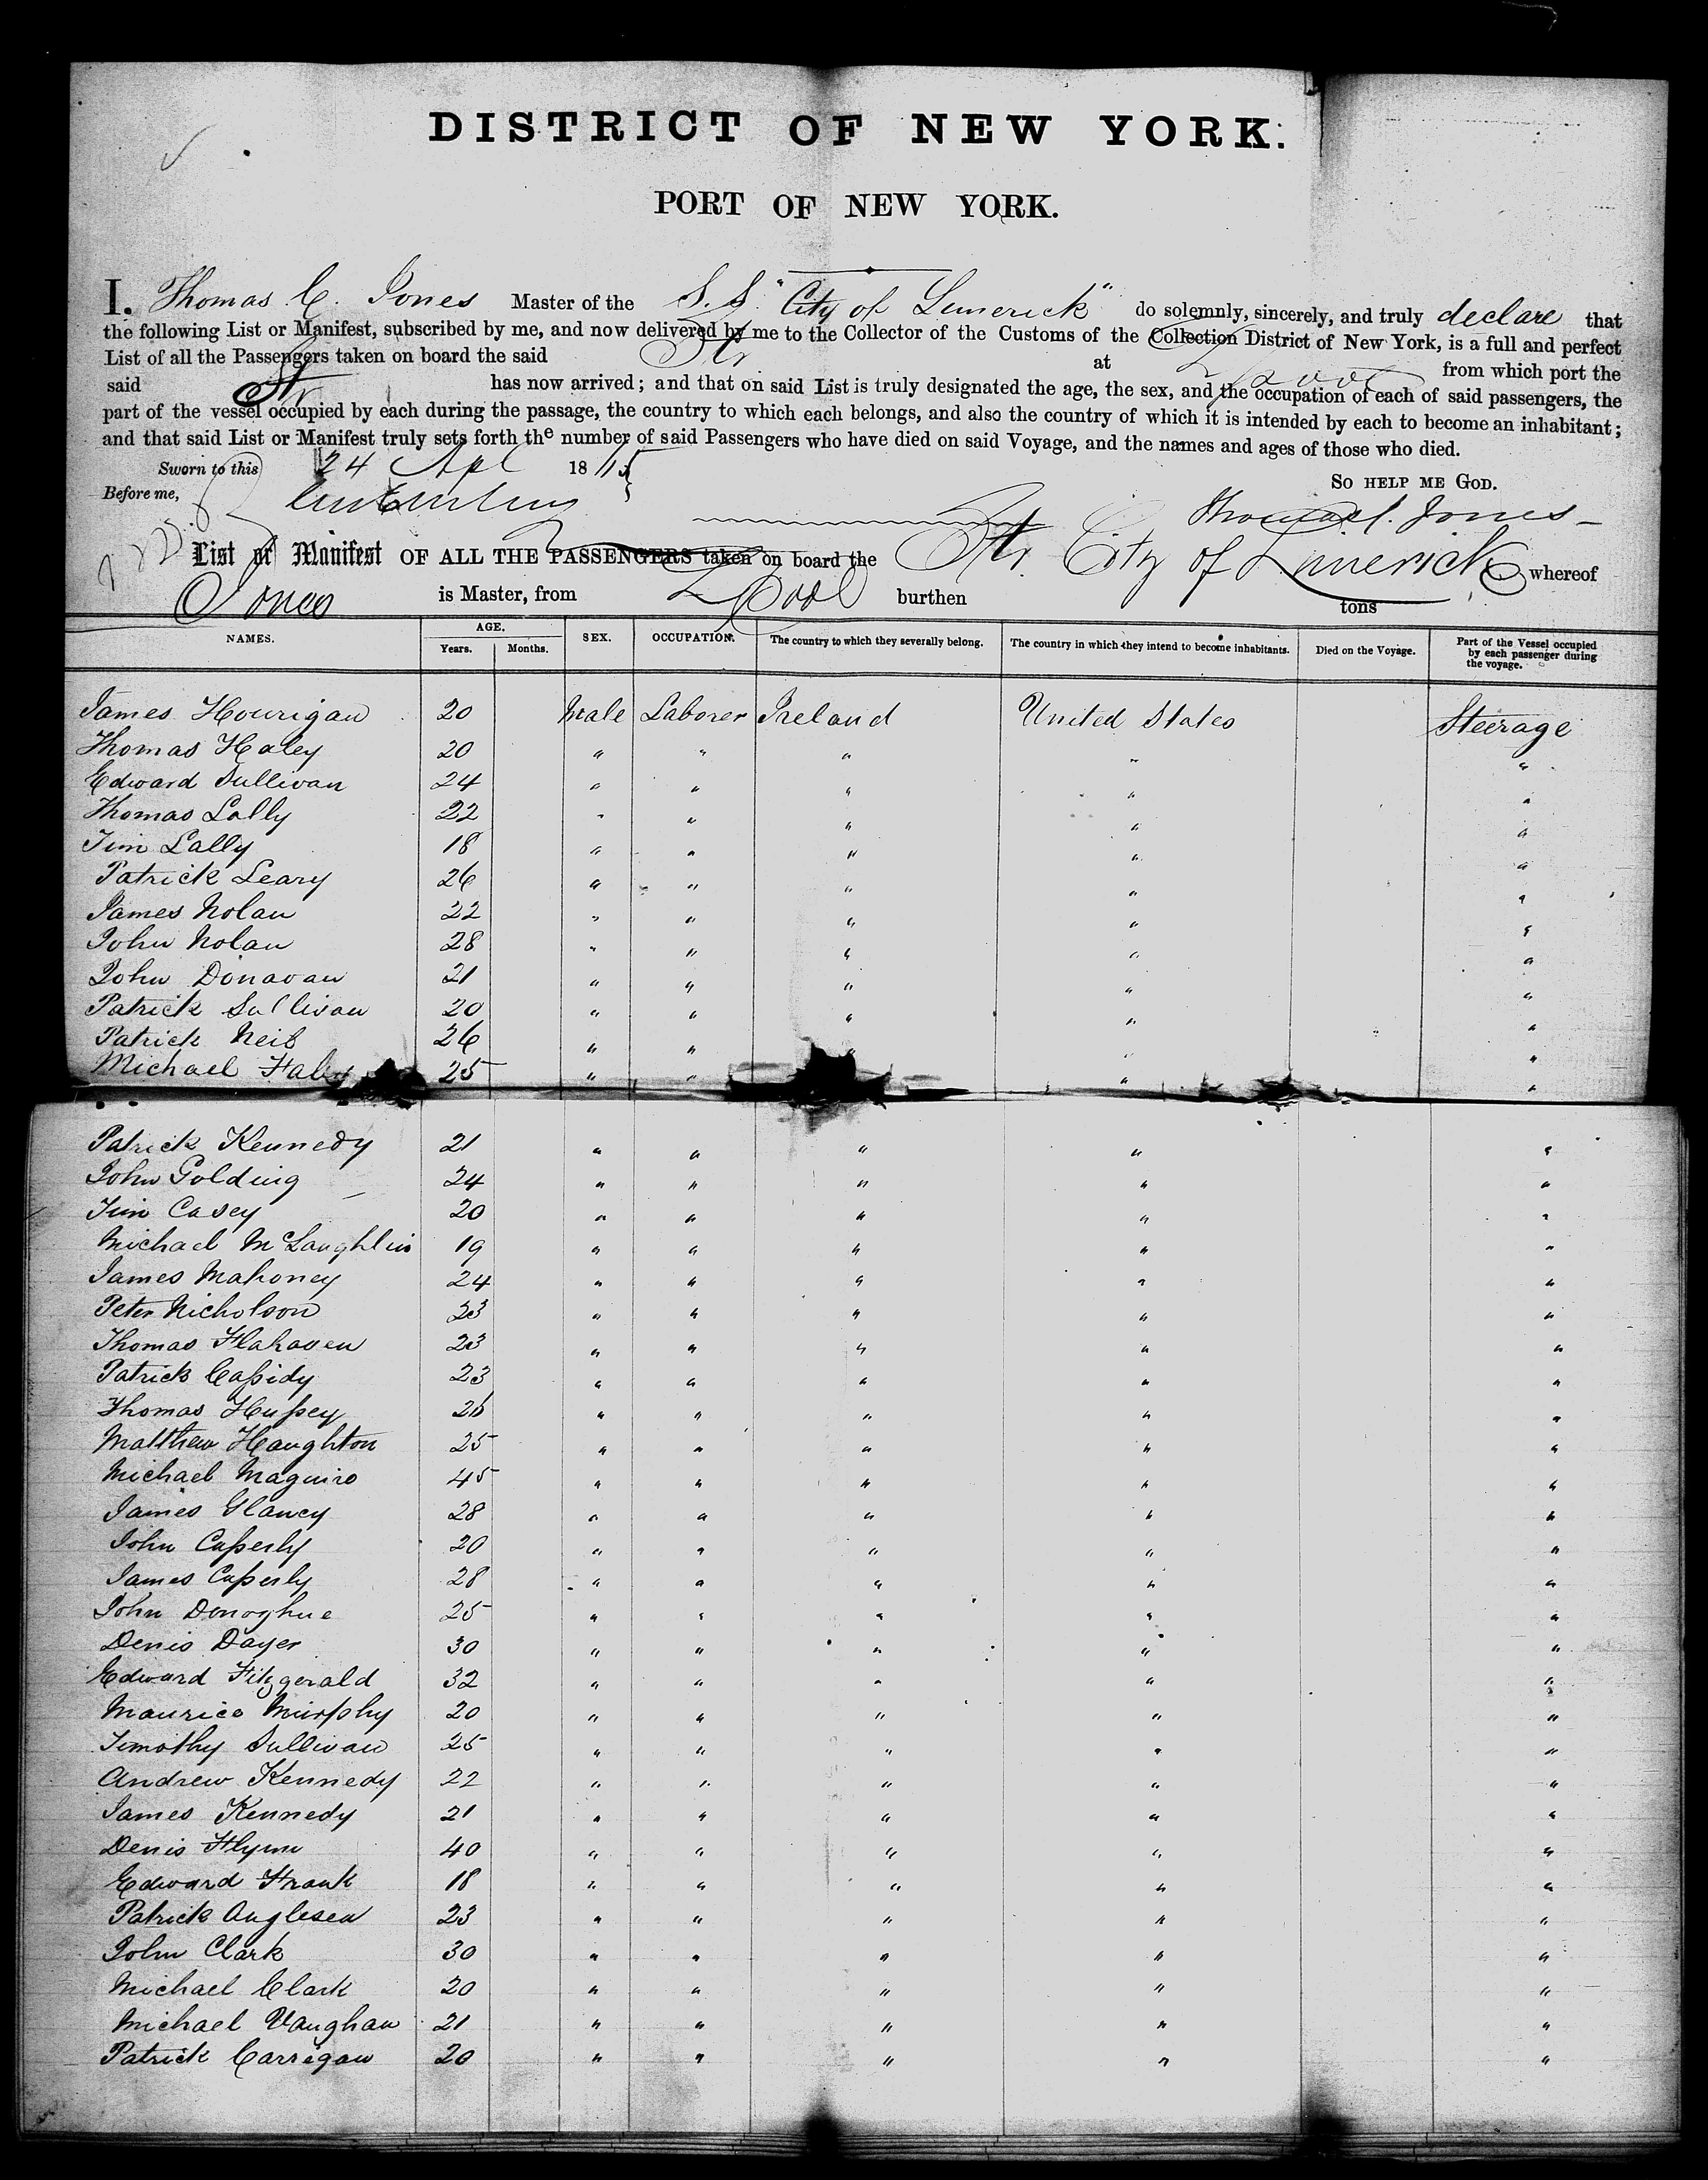 DISTRICT OF NEW YORK.
PORT OF NEW YORK.
I, Thomas C. Jones Master of the S.S. "City of Limerick" do solemnly, sincerely, and truly declare that
the following List or Manifest, subscribed by me, and now delivered by me to the Collector of the Customs of the Collection District of New York, is a full and perfect
List of all the Passengers taken on board the said Str at L'pool from which port the
said Str has now arrived; and that on said List is truly designated the age, the sex, and the occupation of each of said passengers, the
part of the vessel occupied by each during the passage, the country to which each belongs, and also the country of which it is intended by each to become an inhabitant;
and that said List or Manifest truly sets forth the number of said Passengers who have died on said Voyage, and the names and ages of those who died.
Sworn to this 24 Apl 18
SO HELP ME GOD.
Before me,
Thomas C. Jones
List or Manifest OF ALL THE PASSENGERS taken on board the Str. City of Limerick whereof
Jones is Master, from L'pool burthen tons
NAMES. AGE. Years. Months. SEX. OCCUPATION. The country to which they severally belong. The country in which they intend to become inhabitants. Died on the Voyage. Part of the Vessel occupied by each passenger during the voyage.
James Hourigan 20 Male Laborer Ireland United States Steerage
Thomas Haley 20 " " " " "
Edward Sullivan 24 " " " " "
Thomas Lally 22 " " " " "
Tim Lally 18 " " " " "
Patrick Leary 26 " " " " "
James Nolan 22 " " " " "
John Nolan 28 " " " " "
John Donavan 21 " " " " "
Patrick Sullivan 20 " " " " "
Patrick Neil 26 " " " " "
Michael 25 " " " "
Patrick Kennedy 21 " " " " "
John Golding 24 " " " " "
Tim Casey 20 " " " " "
Michael McLaughlin 19 " " " " "
James Mahoney 24 " " " " "
Peter Nicholson 23 " " " " "
Thomas Flahaven 23 " " " " "
Patrick Cassidy 23 " " " " "
Thomas Hussey 26 " " " " "
Matthew Haughton 25 " " " " "
Michael Maguire 45 " " " " "
James Glancy 28 " " " " "
John Casserly 20 " " " " "
James Casserly 28 " " " " "
John Donoghue 25 " " " " "
Denis Dayer 30 " " " " "
Edward Fitzgerald 32 " " " " "
Maurice Murphy 20 " " " " "
Timothy Sullivan 25 " " " " "
Andrew Kennedy 22 " " " " "
James Kennedy 21 " " " " "
Denis Flynn 40 " " " " "
Edward Frank 18 " " " " "
Patrick Anglesea 23 " " " " "
John Clark 30 " " " " "
Michael Clark 20 " " " " "
Michael Vaughan 21 " " " " "
Patrick Carrigan 20 " " " " "